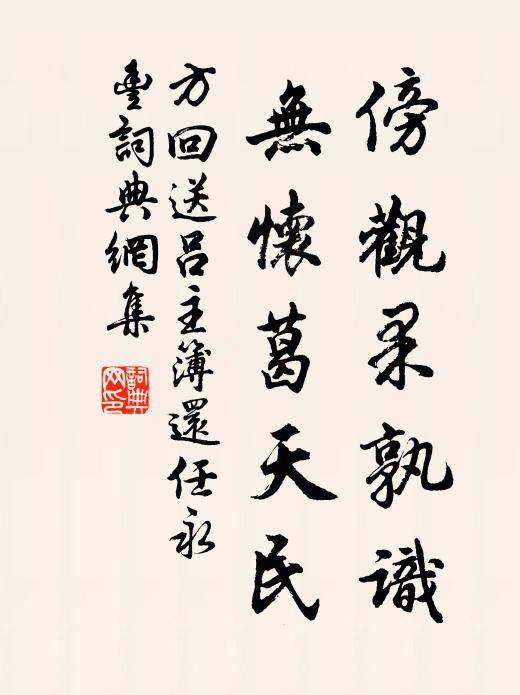 傍觀果孰識
無懷葛天民
方回送呂主簿還任永
豊詞典網集
詞典
网印